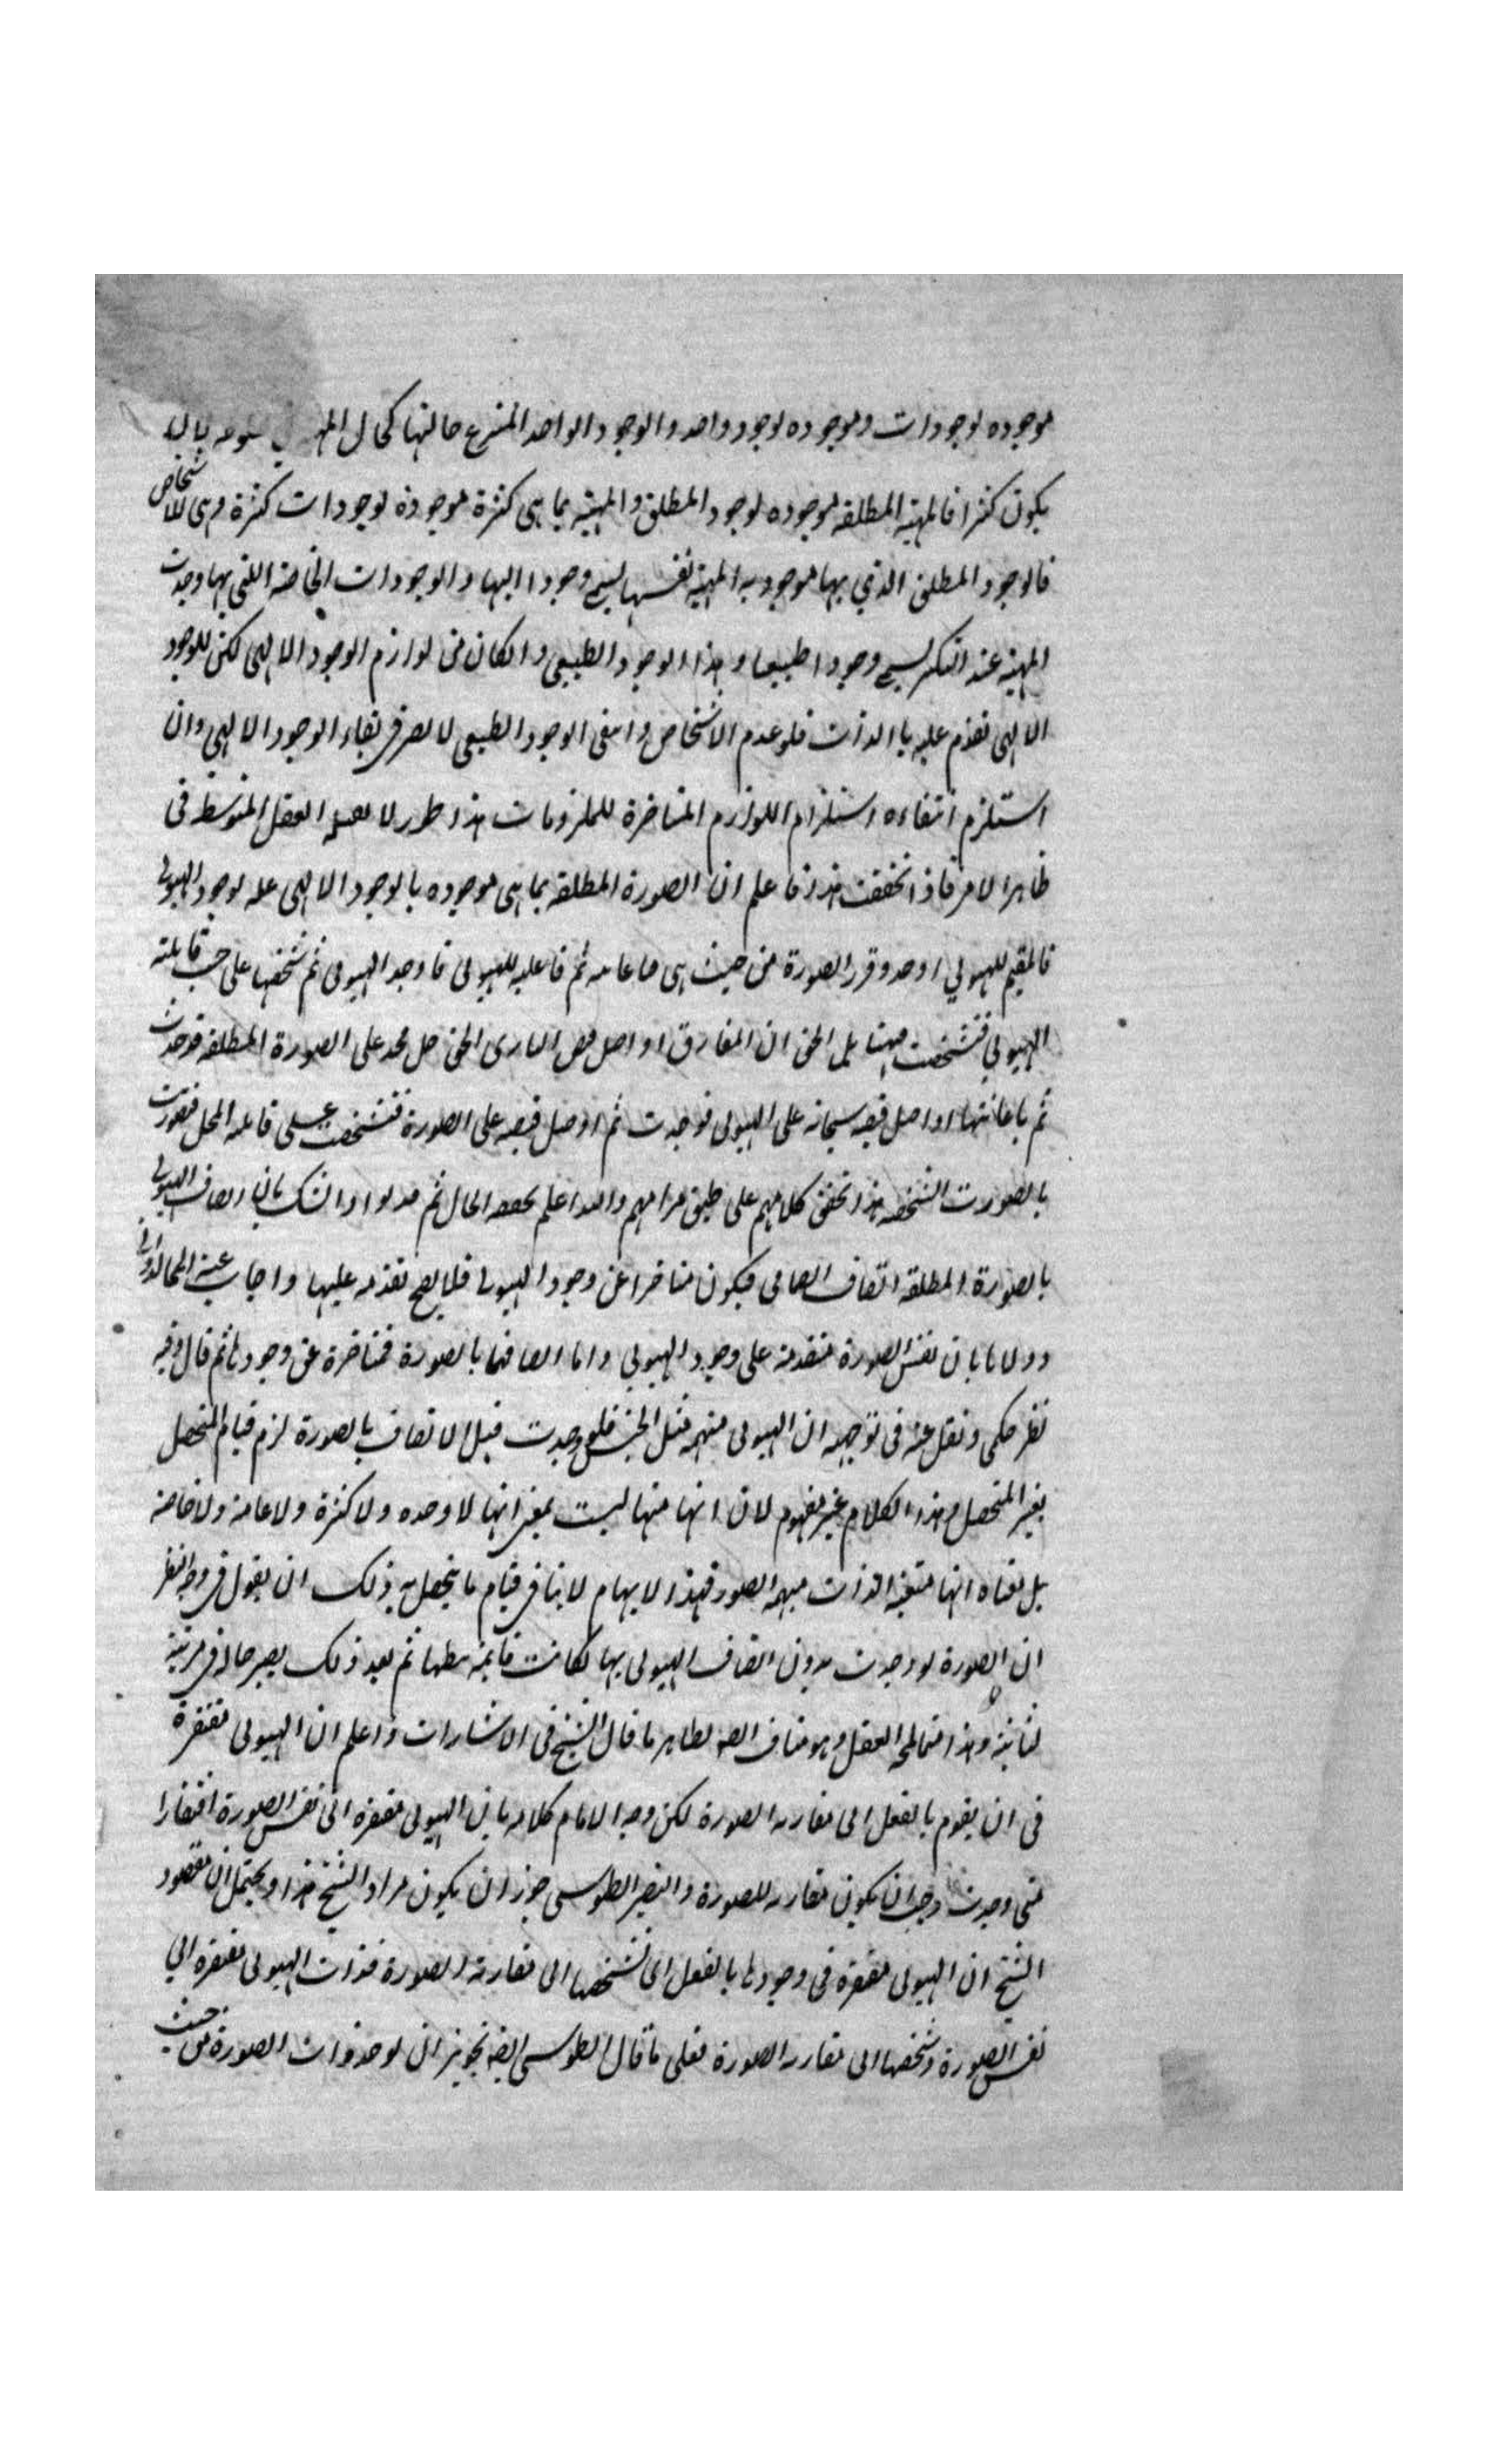 موجوده لوجودات وموجوده لوجود واحد والوجود الواحد المنتزع حالتها كحال
يكون كثرا فالمهية المطلقه موجوده لوجود المطلق والمهية بما هى كثرة موجودة لوجودات كثرة وهى للاشخاص
فالوجود المطلق الذي بها موجود به المهية نفسها يسمى وجودا الهيا والوجودات الخاصة التى بها وجدت
المهية عند التكثر يسمى وجودا طبيعيا وهذا الوجود الطبيعى وانكان من لوازم الوجود الالهى لكن للوجود
الالهى تقدم عليه باالذات فلو عدم الاشخاص وانتفى الوجود الطبيعى لا يضر فى بقاء الوجود الالهى وان
استلزم انتفاءه استلزام اللوازم المتاخرة للملزومات هذا طور لا العقل المتوسط فى
ظاهر الامر فاذا تحققت هذا فاعلم ان الصورة المطلقه بما هى موجوده بالوجود الالهى عله لوجود الهيولى
فالمقيم للهيولي اوجد وقرر الصورة من حيث هى ثم فاعليه للهيولى فاوجد الهيولى ثم شخصها على حسب قابلته
الهيولي فتشخصت بل الحق ان المفارق او اصل البارى الحق جل مجده على الصورة المطلقه فوجدت
ثم باعانتها او اصل فيضه سبحانه على الهيولى فوجدت ثم اوصل فيضه على الصورة فتشخصت على قابليه المحل فتصورت
بالصورت الشخصه هذا تحقق كلامهم على طبق مرامهم والله اعلم بحقيقه الحال ثم اتصاف الهيولى
بالصورة المطلقة اتصاف فيكون متاخرا عن وجود الهيولى فلا يصح تقدمه عليها واجاب عنه
بان نفس الصورة متقدمة على وجود الهيولي واما اتصافها بالصورة فمتاخرة عن وجودها ثم قال وفيه
نظر حكمى ونقل عنه فى توجيهه ان الهيولى مبهمه مثل الجنس فلو وجدت قبل الاتصاف بالصورة لزم قيام المتحصل
بغير المتحصل وهذا الكلام غير مفهوم لان ابهامها ليست بمعنى انها لا وحده ولا كثرة ولا عامة ولا خاصة
بل معناه انها متعينه الذات مبهمه الصور فهذا الابهام لا ينافى قيام ما يتحصل به ذلك ان يقول فى وجه النظر
ان الصورة لو وجدت بدون اتصاف الهيولى بها لكانت قايمه ثم بعد ذلك يصير حاله فى مرتبة
ثانية وهذا العقل وهو مناف لظاهر ما قال الشيخ فى الاشارات واعلم ان الهيولى مفتقرة
فى ان يقوم بالفعل الى مقارنه الصورة لكن وجه الامام كلامه بان الهيولى مفتقره الى نفس الصورة افتقارا
متى وجدت وجب ان يكون مقارنه للصورة والنصير الطوسى جوز ان يكون مراد الشيخ هذا ويحتمل ان مقصود
الشيخ ان الهيولى مفتقره فى وجودها بالفعل اى تشخصها الى مقارنة الصورة فذات الهيولى مفتقره الي
نفس الصورة وتشخصها الى مقارنه الصورة فعلى ما قال الطوسى ايضه تجويز ان يوجد ذات الصورة من حيث